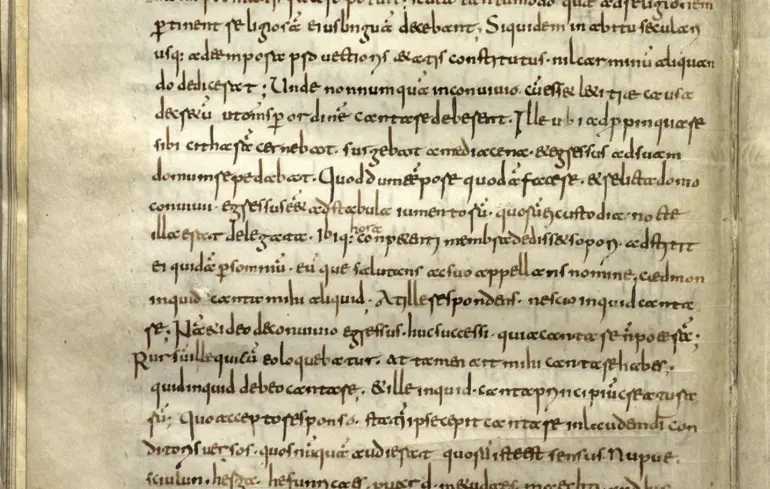 ptinent religiosā eius linguā decebant; Siquidem in abitu seculari
usq; ad tempora puectioris aetatis constitutus. nil carminū aliquan
do didicerat; Unde nonnumquā in conuiuio. cū esset laetitiae causa
decretū ut oms p ordinē cantare deberent. Ille ubi adppinquare
sibi citharā cernebat. surgebat a media cena. & egressus ad suam
domum repedabat. Quod dum tēpore quodā faceret. & relicta domo
conuiuii. egressus eēt ad stabula iumentorū. quorū ei custodia nocte
illa erat delegata. Ibiq; hora conpetenti membra dedisset sopori. adstitit
ei quidā p somniū. eūque salutans ac suo appellans nomine, caedmon
inquid canta mihi aliquid. At ille respondens. nescio inquid canta
re; Nā et ideo de conuiuio egressus. huc successi. quia cantare n poterā;
Rursū ille qui cū eo loquebatur. at tamen ait mihi cantare habes,
quid inquid debeo cantare, & ille inquid. canta principiū creatura
rū; Quo accepto responso. statī ipse cepit cantare in laudem dī con
ditoris uersos. quos nūquā audierat quorū iste est sensus. Nu pue
sciulun. herga. hefunricaes. puard. metudaes. maecti. and his